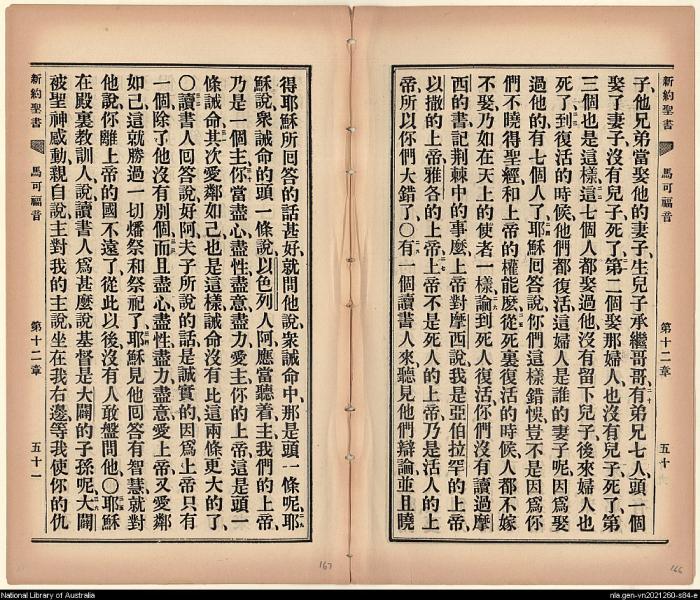 新約聖書
馬可福音
第十二章
五十
子、他兄弟當娶他的妻子、生兒子承繼哥哥、有弟兄七人、頭一個
娶了妻子、沒有兒子死了、第二個娶那婦人、也沒有兒子死了、第
三個也是這樣、這七個人都娶過他、沒有留下兒子、後來婦人也
死了、到復活的時候、他們都復活、這婦人是誰的妻子呢、因爲娶
過他的有七個人了、耶穌回答說、你們這樣錯悞、豈不是因爲你
們不曉得聖經、和上帝的權能麼、從死裏復活的時候、人都不嫁
不娶、乃如在天上的使者一樣、論到死人復活、你們沒有讀過摩
西的書記荆棘中的事麼、上帝對摩西說、我是亞伯拉罕的上帝、
以撒的上帝、雅各的上帝、上帝不是死人的上帝、乃是活人的上
帝、所以你們大錯了、〇有一個讀書人來、聽見他們辯論、並且曉
得耶穌所回答的話甚好、就問他說、衆誡命中、那是頭一條呢、耶
穌說、衆誡命的頭一條說、以色列人阿、應當聽着、主我們的上帝、
乃是一個主、你當盡心盡性盡意盡力愛主你的上帝、這是頭一
條誡命、其次愛鄰如己、也是這樣、誡命沒有比這兩條更大的了、
〇讀書人回答說、好阿、夫子所說的話是誠實的、因爲上帝只有
一個、除了他沒有別個、而且盡心盡性盡力盡意愛上帝、又愛鄰
如己、這就勝過一切燔祭和祭祀了、耶穌見他回答有智慧、就對
他說、你離上帝的國不遠了、從此以後、沒有人敢盤問他、〇耶穌
在殿裏教訓人、說、讀書人爲甚麽說基督是大闢的子孫呢、大闢
被聖神感動、親自說、主對我的主說、坐在我右邊、等我使你的仇
新約聖書
馬可福音
第十二章
五十一
167
166
National Library of Australia
nla.gen-vn2021260-s84-e